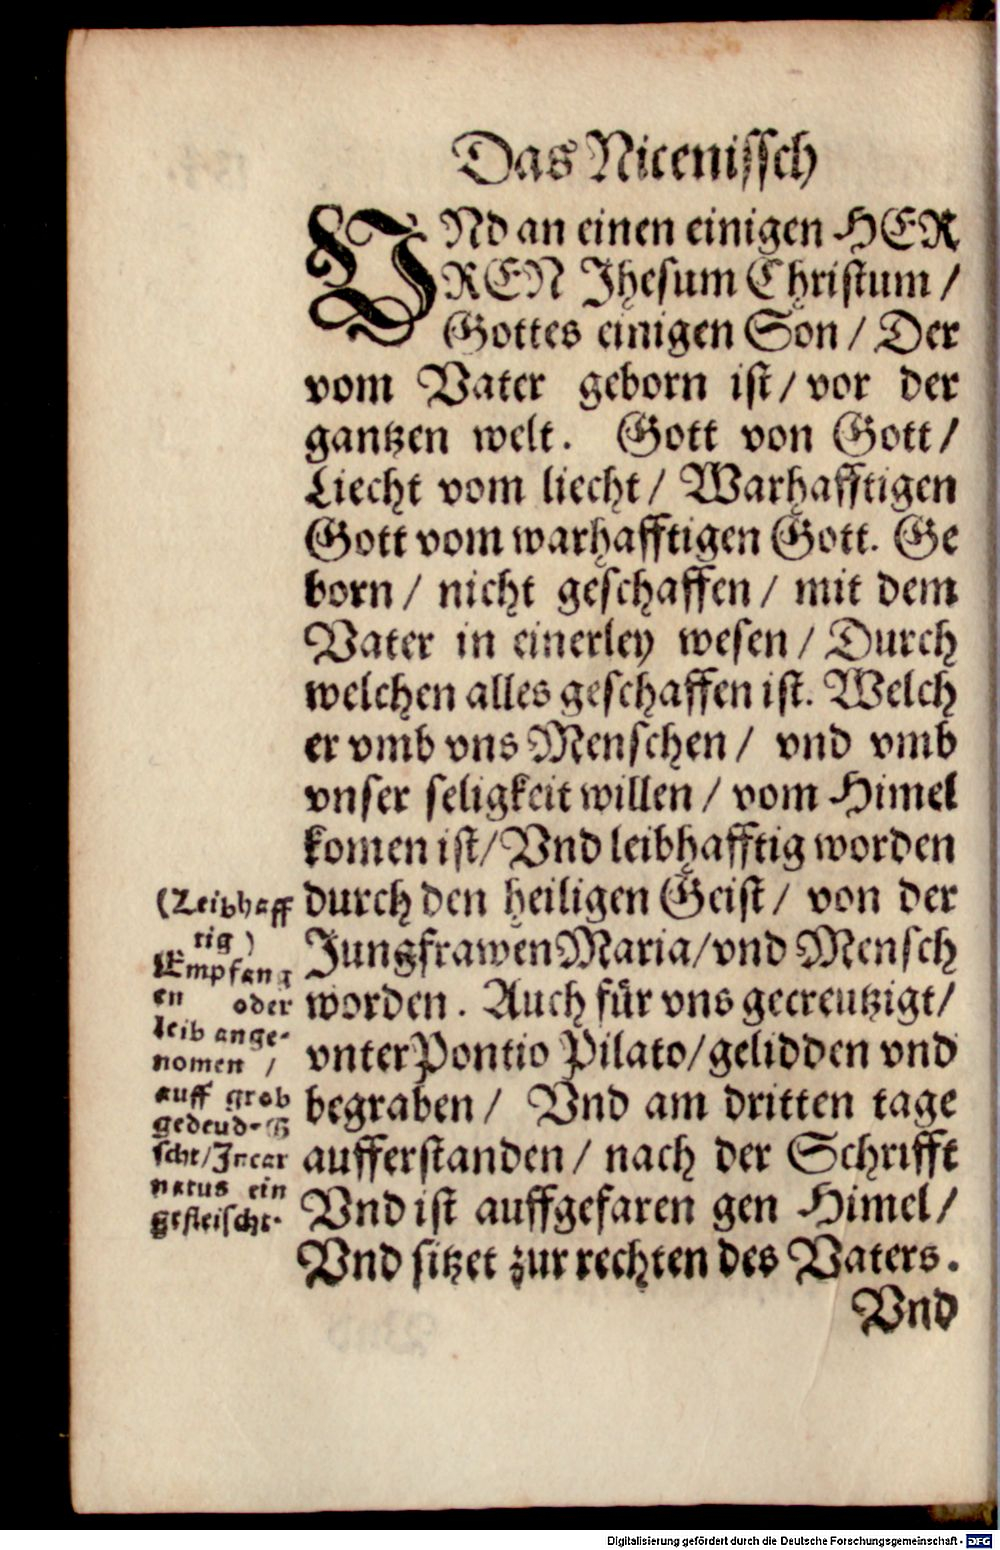 Das Nicenissch
VNd an einen einigen HER
REN Jhesum Christum /
Gottes einigen Son / Der
vom Vater geborn ist / vor der
gantzen welt. Gott von Gott /
Liecht vom liecht / Warhafftigen
Gott vom warhafftigen Gott. Ge
born / nicht geschaffen / mit dem
Vater in einerley wesen / Durch
welchen alles geschaffen ist. Welch
er vmb vns Menschen / vnd vmb
vnser seligkeit willen / vom Himel
komen ist / Vnd leibhafftig worden
durch den heiligen Geist / von der
Jungfrawen Maria / vnd Mensch
worden. Auch für vns gecreutzigt /
vnter Pontio Pilato / gelidden vnd
begraben / Vnd am dritten tage
aufferstanden / nach der Schrifft
Vnd ist auffgefaren gen Himel /
Vnd sitzet zur rechten des Vaters.
Vnd
(Leibhaff
tig)
Empfang
en oder
leib ange-
nomen /
auff grob
gedeud-
scht / Incar
natus ein
gefleischt.
Digitalisierung gefördert durch die Deutsche Forschungsgemeinschaft - DFG